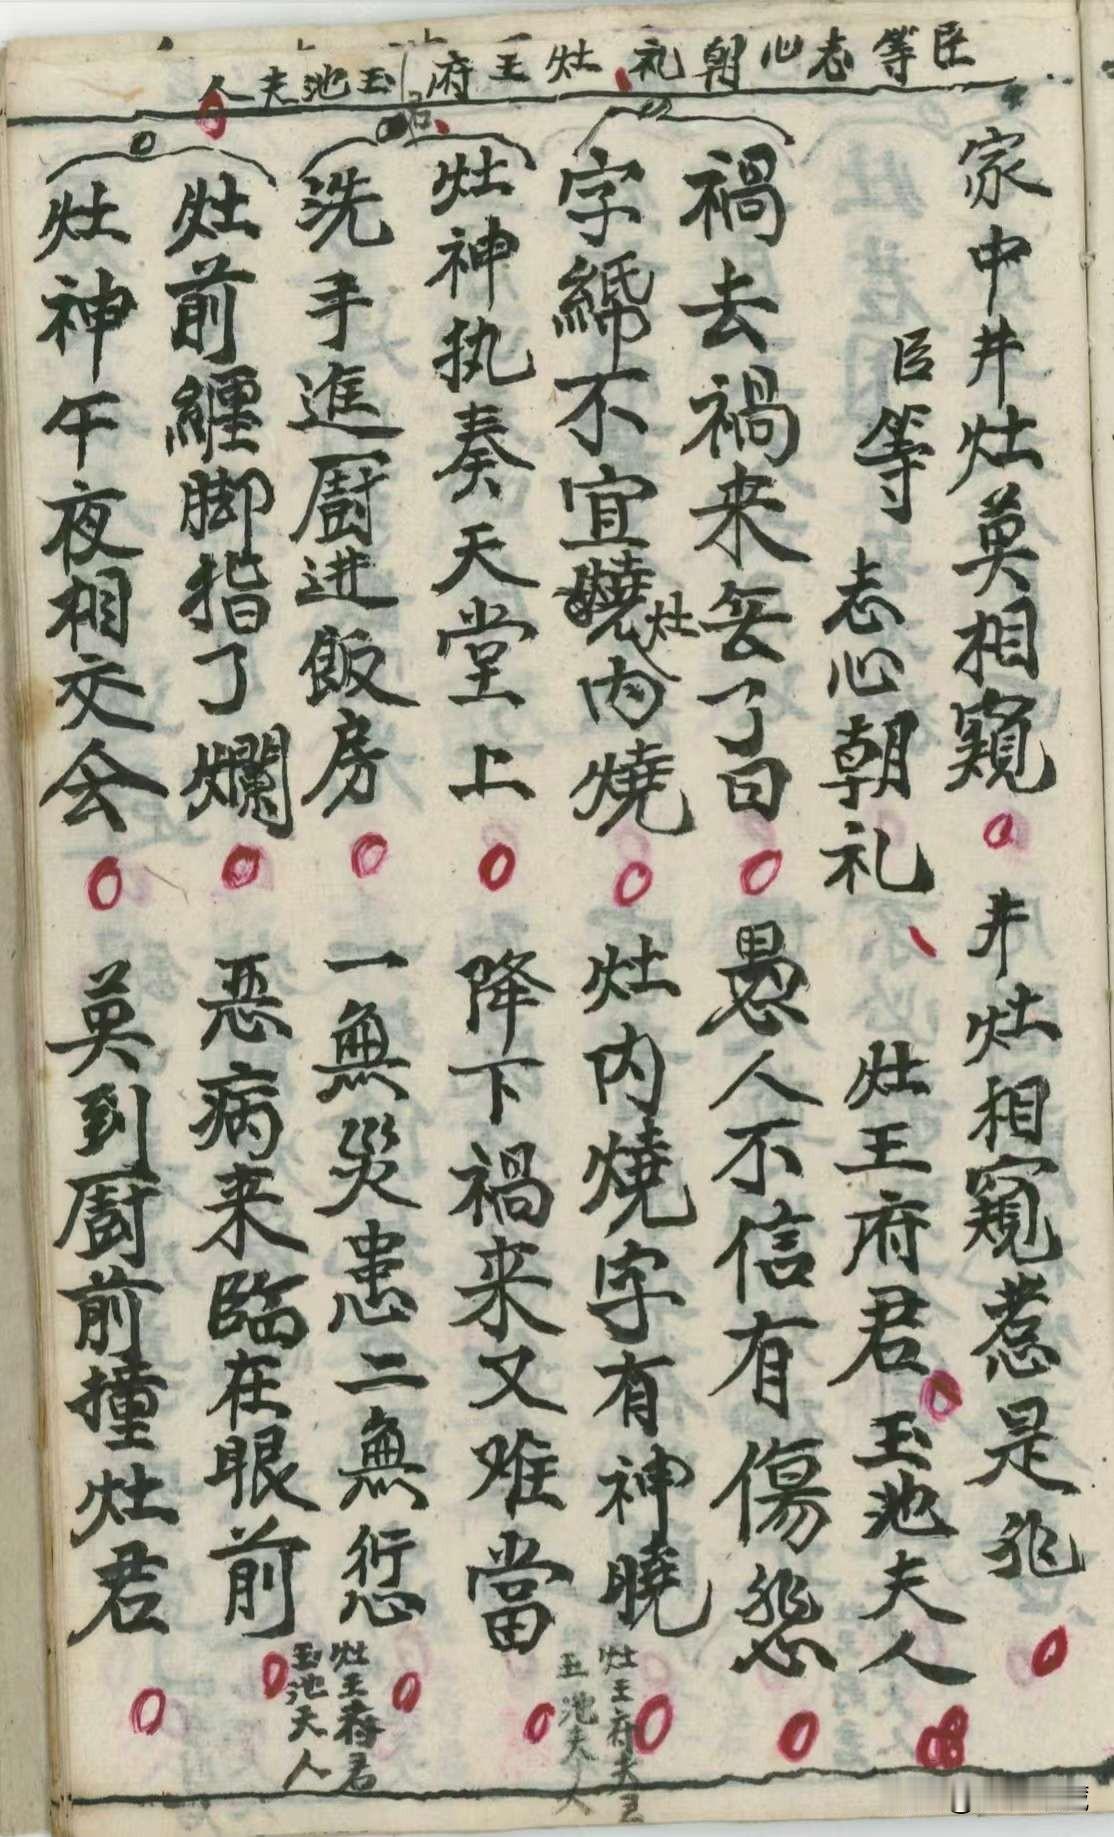 臣等志心朝礼灶王府君玉池夫人
家中井灶莫相窺 井灶相窺惹是非
臣等 志心朝礼 灶王府君 玉池夫人
禍去禍来無了日 愚人不信有傷悲
字紙不宜灶内燒 灶内燒字有神曉
灶王府夫君
玉池夫人
灶神执奏天堂上 降下禍来又难當
洗手進廚进飯房 一無災患二無愆
灶王府君
玉池夫人
灶前纏脚指了爛 恶病来臨在眼前
灶神午夜相交会 莫到廚前撞灶君